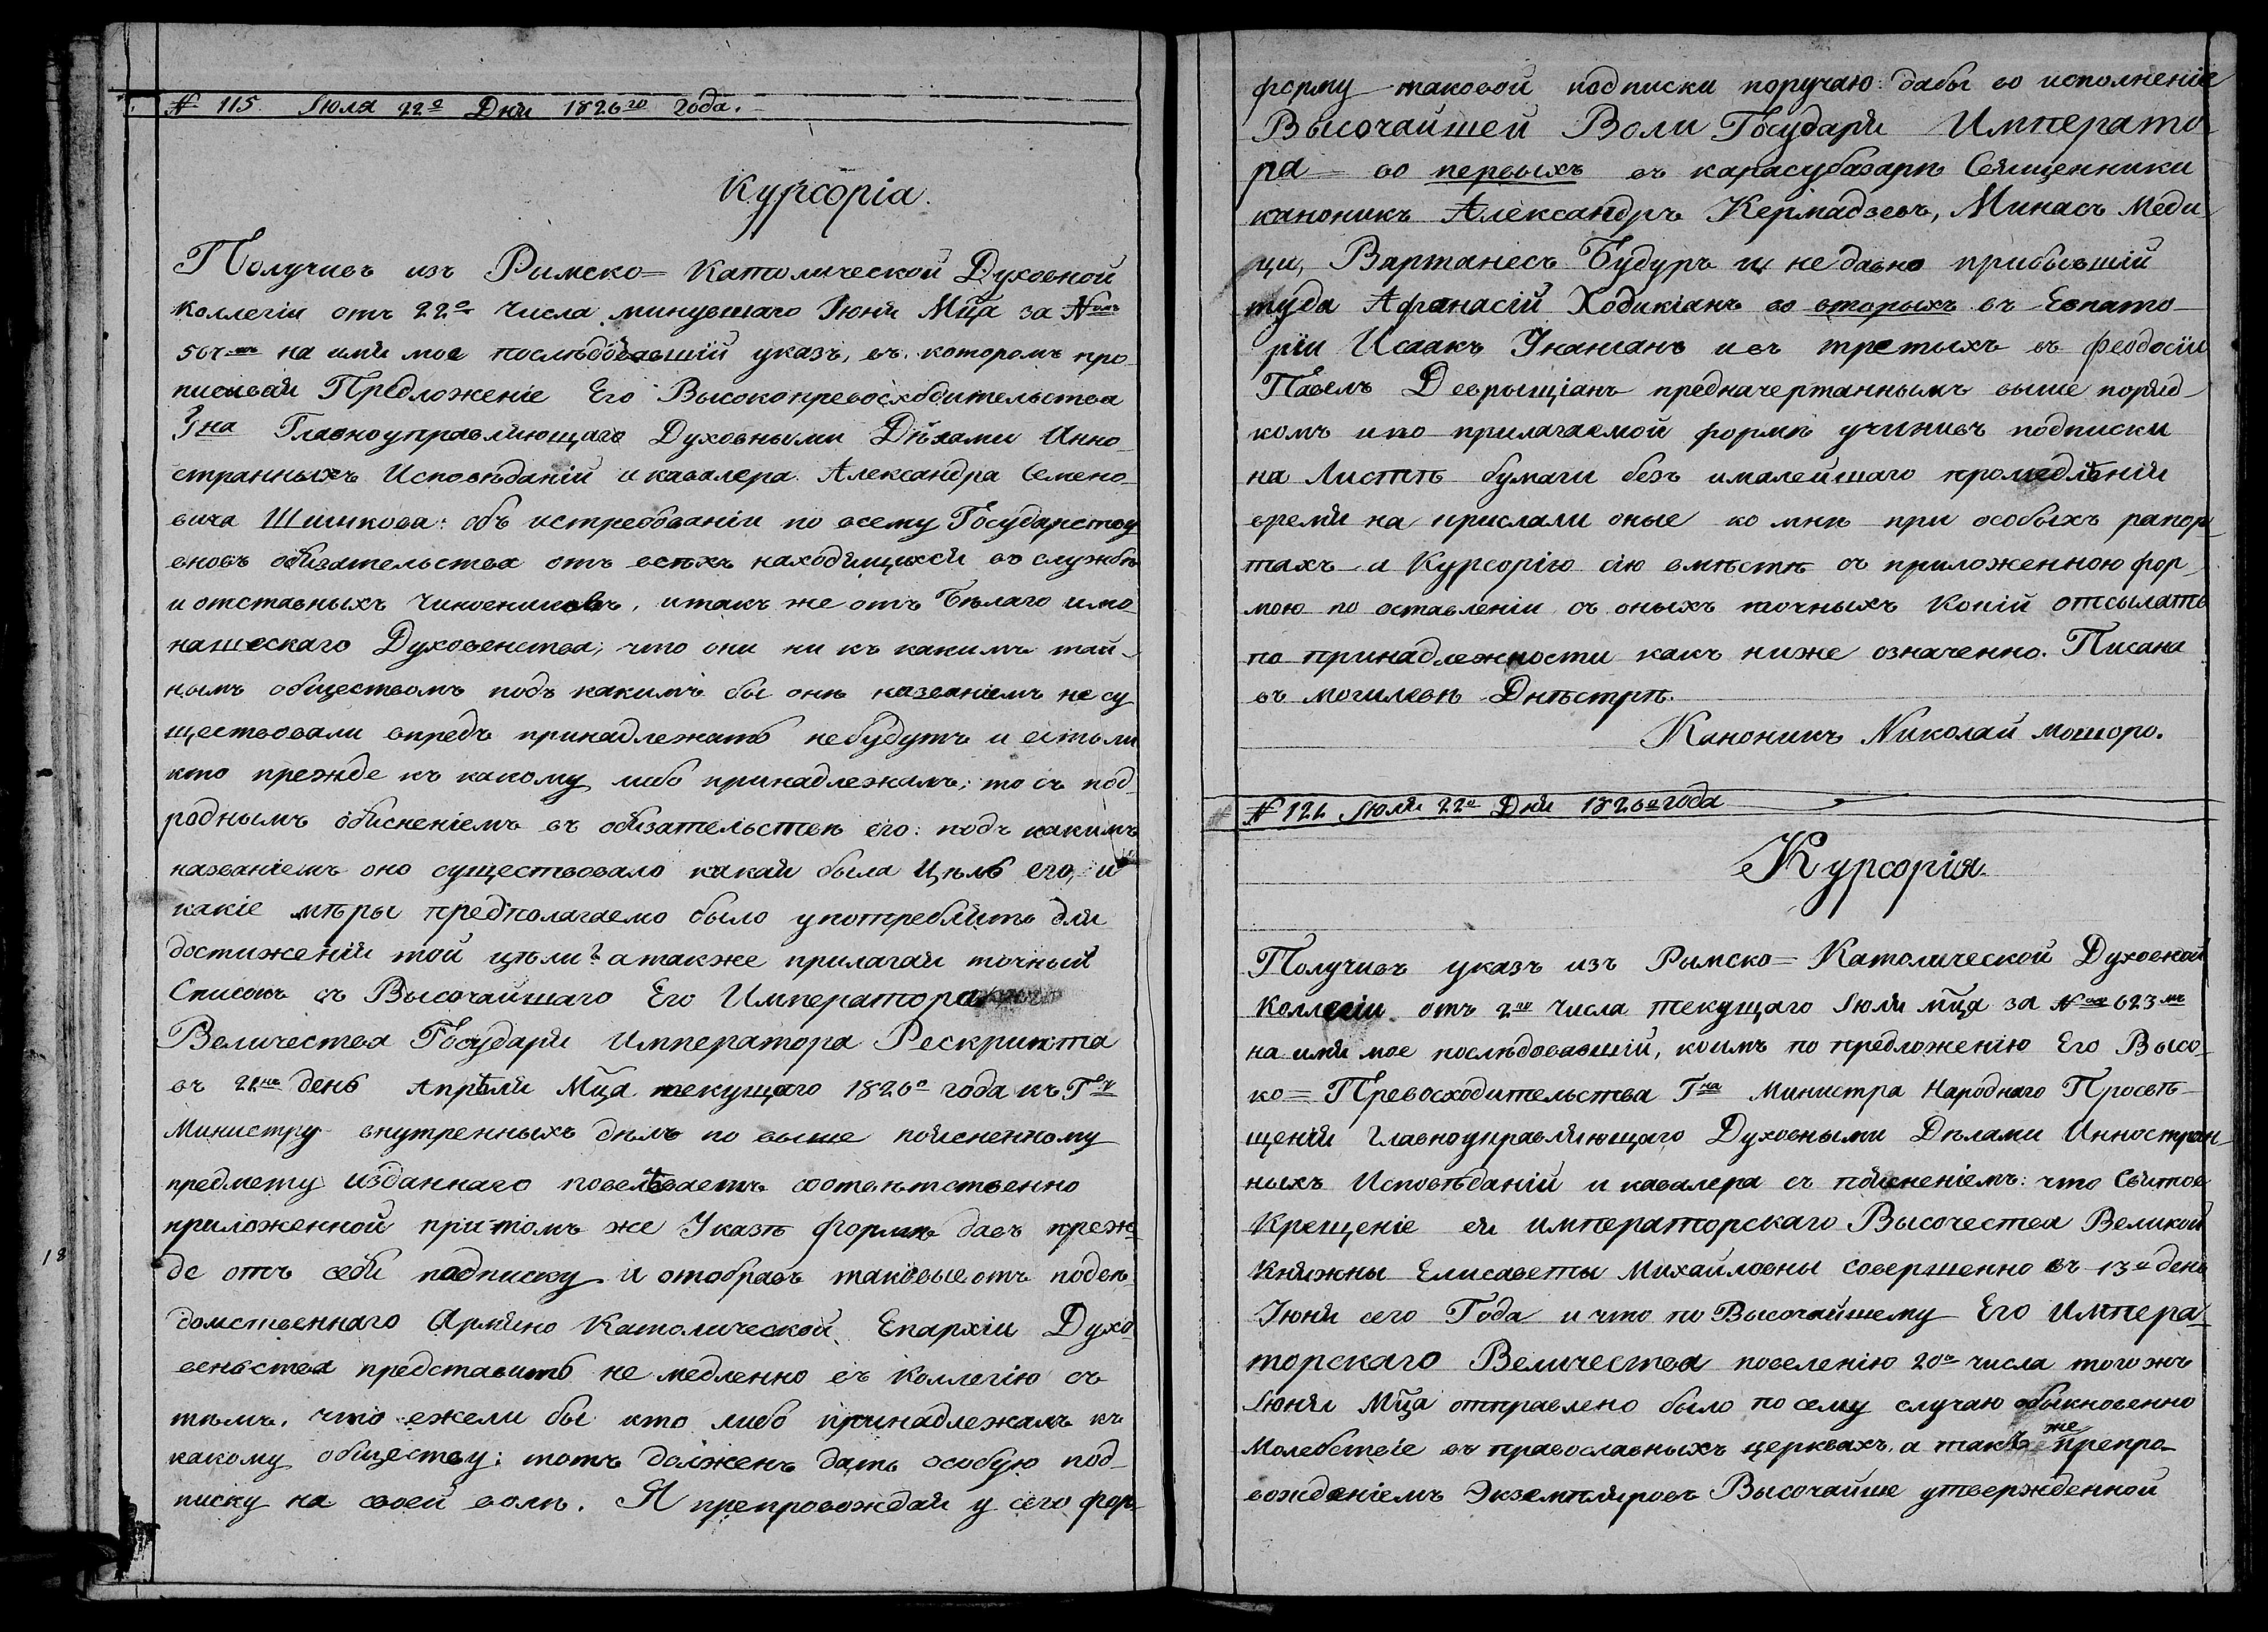 № 115. Іюля 22го Дня 1826го года.
Курсорія.
Получивъ изъ Римско=Католической Духовной
Коллегіи отъ 22го числа минувшаго Іюня Мца за №мъ
567мъ на имя мое послѣдовавшій указъ, въ которомъ про-
писывая Предложеніе Его Высокопревосходительства
Гна Главноуправляющаго Духовными Дѣлами Инно-
странныхъ Исповѣданій и кавалера Александра Семено-
вича Шишкова: объ истребованіи по всему Государству
вновь обязательства отъ всѣхъ находящихся въ службѣ
и отставныхъ Чиновниковъ, итакъ же отъ Бѣлаго имо-
нашескаго Духовенства; что они ни къ какимъ тай-
нымъ обществомъ подъ какимъ бы онѣ названіемъ не су
ществовали впредъ принадлежать небудутъ и естьли
кто прежде къ какому либо принадлежалъ; то съ под-
роднымъ обясненіемъ въ обязательствѣ его: подъ какимъ
названіемъ оно существовало какая была Цѣль его, и
какіе мѣры предполагаемо было употреблять для
достиженія той цѣли? атакже прилагая точный
Списокъ съ Высочайшаго Его Императора
Величества Государя Императора Рескрипта
въ 21нъ день Апрѣля Мца текущаго 1826о года къ Гну
Министру внутренныхъ дѣлъ по выше поясненному
предмету изданнаго повелѣваетъ соотвѣтственно
приложенной притомъ же Указѣ формѣ давъ преж-
де отъ себя подписку и отобравъ таковые отъ подвѣ-
домственнаго Армяно Католической Епархіи Духо-
веньства представить не медленно въ Коллегію съ
тѣмъ, что ежели бы кто либо принадлежалъ къ
какому обществу: тотъ долженъ дать особую под-
писку на своей волѣ. Я препровождая у сего фор-
форму таковой подписки поручаю: дабы во исполненіе
Высочайшей Воли Государя Императо-
ра= во первыхъ въ карасубазарѣ Священники
каноникъ Александръ Кермадзевъ, Минасъ Меди-
ци, Вартанесъ Будуръ и не давно прибывшій
туда Афанасій Ходикіанъ во вторыхъ въ Евпато-
ріи Исаакъ Унаніанъ и въ третыхъ въ Феодосіи
Павелъ Деврыщіанъ предначертаннымъ выше поряд-
комъ и по прилагаемой формѣ учинивъ подписки
на Листѣ бумаги безъ ималейшаго промедлѣнія
время на прислали оные ко мнѣ при особыхъ рапор-
тахъ и Курсорію сію вмѣстѣ съ приложенною фор-
мою по оставленіи съ оныхъ точныхъ копій отсылать
по принадлежности какъ ниже означенно. Писана
въ могилевѣ Днѣстрѣ.
Каноникъ Николай мошоро.
№ 121 Іюля 22о Дня 1826го года
Курсорія.
Получивъ указъ изъ Римско=Католической Духовной
Коллегіи отъ 2го числа текущаго Іюля мца за №мъ 623мъ
на имя мое послѣдовавшій, коимъ по предложенію Его Высо-
ко=Превосходительства Гна Министра Народнаго Просвѣ-
щенія Главноуправляющаго Духовными Дѣлами Инностран-
ныхъ Исповѣданій и кавалера съ поясненіемъ: что Святое
Крещеніе ея императорскаго Высочества Великой
Княжны Елисаветы Михайловны совершенно въ 13й день
Іюня сего Года и что по Высочайшему Его Импера-
торскаго Величества повеленію 20го числа того жъ
Іюня Мца отправлено было по сему случаю обыкновенно
Молебствіе въ православныхъ церквахъ, а такъ же препро-
вожденіемъ Экземпляровъ Высочайше утвержденной